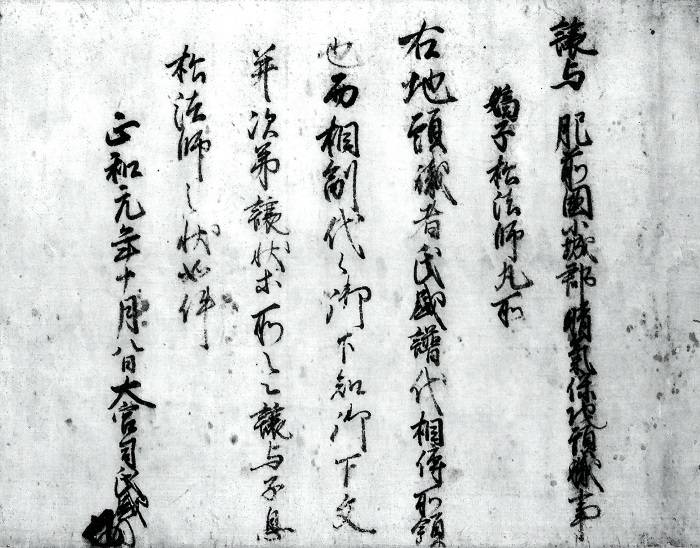 譲与 肥前國小城郡晴氣保地頭職事
嫡子松法師丸所
右地頭職者氏盛譜代相傳所領
也而相副代々御下知御下文
并次第譲状等所令譲与子息
松法師之状如件
正和元年十月八日大宮司氏盛